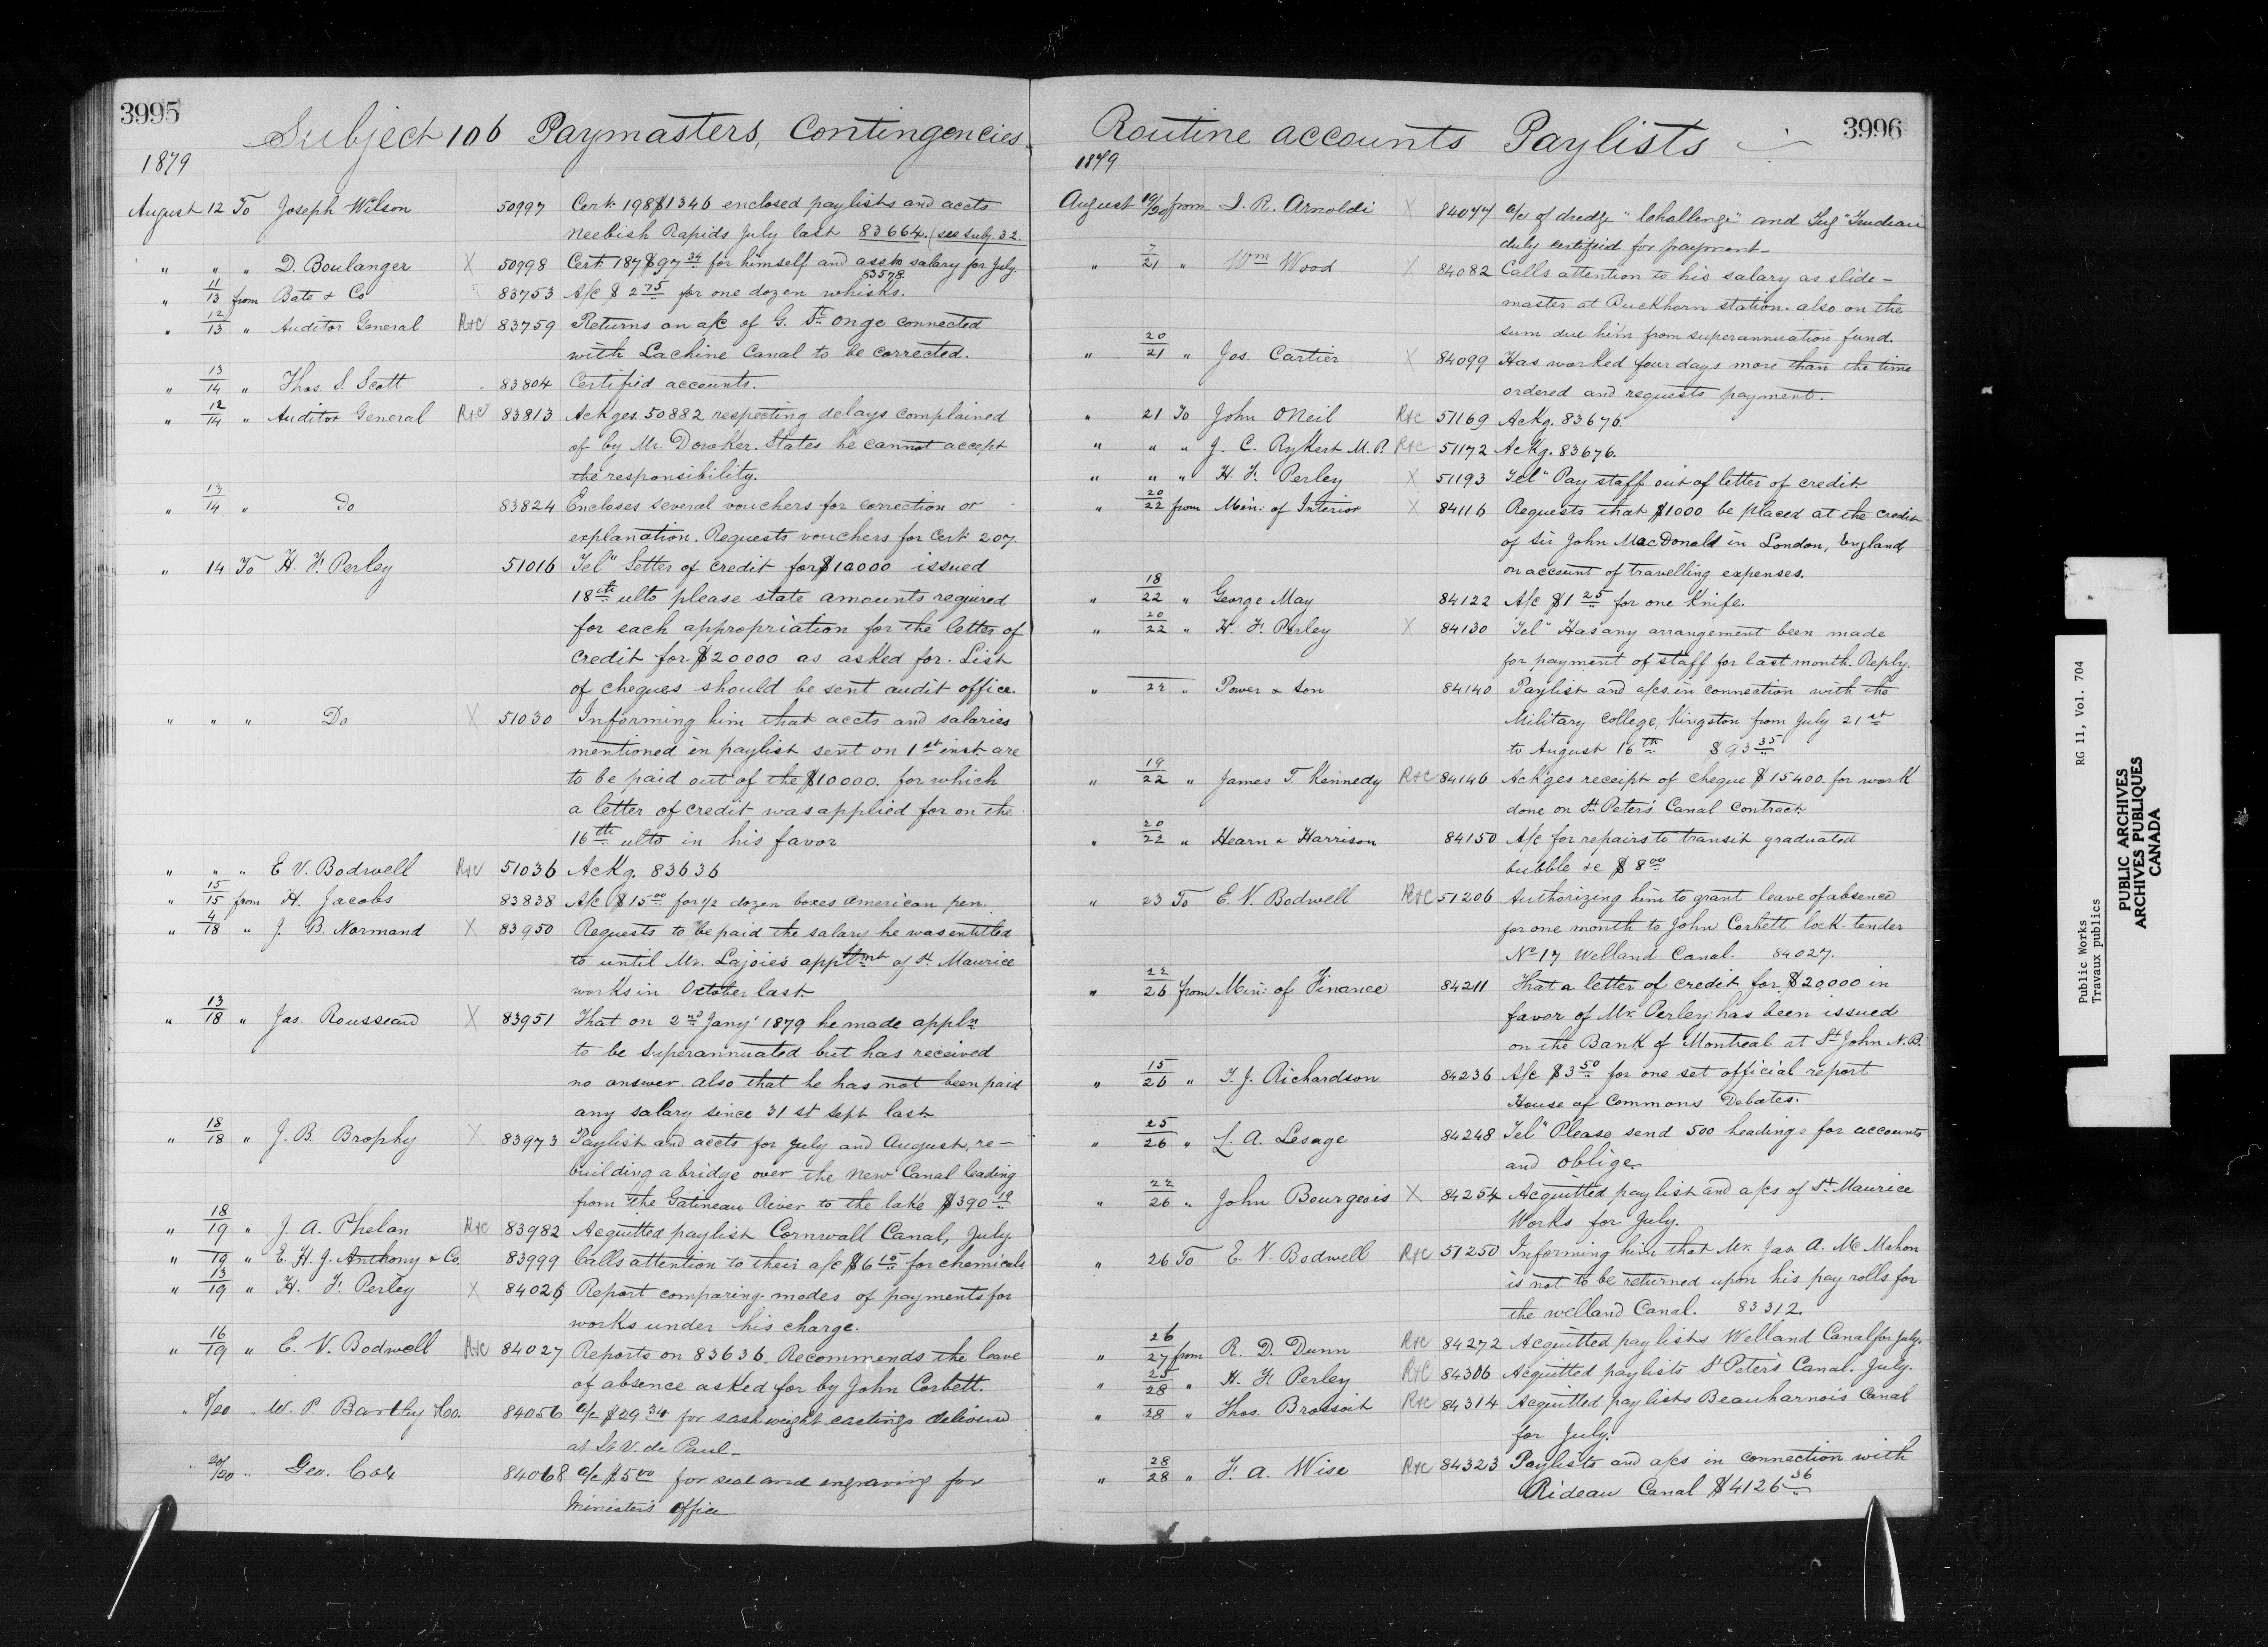 3995
Subject 106 Paymasters, Contingencies
1879
August 12 To Joseph Wilson 50997 Cert. 198 $1346 enclosed paylists and accts
Neebish Rapids July last 83664. (see subj. 32.
" " " D. Boulanger X 50998 Cert. 187 $97 34 for himself and asst's salary for July.
83578
" 11/13 from Bate & Co 83753 A/c $ 2 75 for one dozen whisks.
" 12/13 " Auditor General R&C 83759 Returns an a/c of G. St Onge connected
with Lachine Canal to be corrected.
" 13/14 " Thos. S. Scott 83804 Certified accounts.
" 12/14 " Auditor General R&C 83813 Ackges. 50882 respecting delays complained
of by Mr. Dowker. States he cannot accept
the responsibility.
" 13/14 " Do 83824 Encloses several vouchers for correction or
explanation. Requests vouchers for Cert. 207.
" 14 To H. F. Perley 51016 Tel" Letter of credit for $10000 issued
18th ulto please state amounts required
for each appropriation for the letter of
credit for $20000 as asked for. List
of cheques should be sent audit office.
" " " Do X 51030 Informing him that accts and salaries
mentioned in paylist sent on 1st inst are
to be paid out of the $10000. for which
a letter of credit was applied for on the
16th ulto in his favor
" " " E. V. Bodwell R&C 51036 Ackg. 83636
" 15/15 from H. Jacobs 83838 A/c $15 00 for 1/2 dozen boxes American pen.
" 4/18 " J. B. Normand X 83950 Requests to be paid the salary he was entitled
to until Mr. Lajoie's apptmt of St. Maurice
works in October last.
" 13/18 " Jas. Rousseau X 83951 That on 2nd Jany' 1879 he made appln
to be superannuated but has received
no answer. also that he has not been paid
any salary since 31st Sept last
" 18/18 " J. B. Brophy X 83973 Paylist and accts for July and August, re-
building a bridge over the New Canal leading
from the Gatineau River to the lake $390 19
" 18/19 " J. A. Phelan R&C 83982 Acquitted paylist Cornwall Canal, July.
" 19 " E. H. J. Anthony & Co. 83999 Calls attention to their a/c $6 15 for chemicals
" 13/19 " H. F. Perley X 84026 Report comparing modes of payments for
works under his charge.
" 16/19 " E. V. Bodwell R&C 84027 Reports on 83636. Recommends the leave
of absence asked for by John Corbett.
" 8/20 " W. P. Bartley & Co. 84056 a/c $29 34 for sash weight castings delivered
at St. V. de Paul.
" 20/20 " Geo. Cox 84068 a/c $5 00 for seal and engraving for
Minister's Office
3996
Routine accounts Paylists
1879
August 19/20 from J. R. Arnoldi X 84077 a/c of dredge "Challenge" and Tug "Trudeau"
duly certified for payment
" 7/21 " Wm Wood X 84082 Calls attention to his salary as slide-
master at Buckhorn station. also on the
sum due him from superannuation fund.
" 20/21 " Jos. Cartier X 84099 Has worked four days more than the time
ordered and requests payment.
" 21 To John ONeil R&C 51169 Ackg. 83676.
" " " J. C. Rykert M.P. R&C 51172 Ackg. 83676.
" " " H. F. Perley X 51193 Tel" Pay staff out of letter of credit.
" 20/22 from Min: of Interior X 84116 Requests that $1000 be placed at the credit
of Sir John MacDonald in London, England
on account of travelling expenses.
" 18/22 " George May 84122 A/c $1 25 for one Knife.
" 20/22 " H. F. Perley X 84130 Tel" Has any arrangement been made
for payment of staff for last month. Reply.
" 22 " Power & Son 84140 Paylist and a/cs in connection with the
Military College, Kingston from July 21st
to August 16th $93 35
" 19/22 " James T. Kennedy R&C 84146 Ack'ges receipt of cheque $15400. for work
done on St. Peter's Canal Contract.
" 20/22 " Hearn & Harrison 84150 A/c for repairs to transit graduated
bubble &c $8 00
" 23 To E. V. Bodwell R&C 51206 Authorizing him to grant leave of absence
for one month to John Corbett lock-tender
No 17 Welland Canal. 84027.
" 22/26 from Min: of Finance 84211 That a letter of credit for $20000 in
favor of Mr. Perley has been issued
on the Bank of Montreal at St John N.B.
" 15/26 " T. J. Richardson 84236 A/c $3 50 for one set official report
House of Commons Debates.
" 25/26 " L. A. Lesage 84248 Tel" Please send 500 headings for accounts
and oblige.
" 22/26 " John Bourgeois X 84254 Acquitted paylist and a/cs of St. Maurice
Works for July.
" 26 To E. V. Bodwell R&C 51250 Informing him that Mr. Jas. A. McMahon
is not to be returned upon his pay rolls for
the Welland Canal. 83312.
" 26/27 from R. D. Dunn R&C 84272 Acquitted paylists Welland Canal for July.
" 25/28 " H. F. Perley R&C 84306 Acquitted paylists St Peter's Canal. July.
" 28 " Thos. Brossoit R&C 84314 Acquitted paylists Beauharnois Canal
for July.
" 28/28 " F. A. Wise R&C 84323 Paylists and a/cs in connection with
Rideau Canal $4126 36
Public Works RG 11, Vol. 704
Travaux publics
PUBLIC ARCHIVES
ARCHIVES PUBLIQUES
CANADA